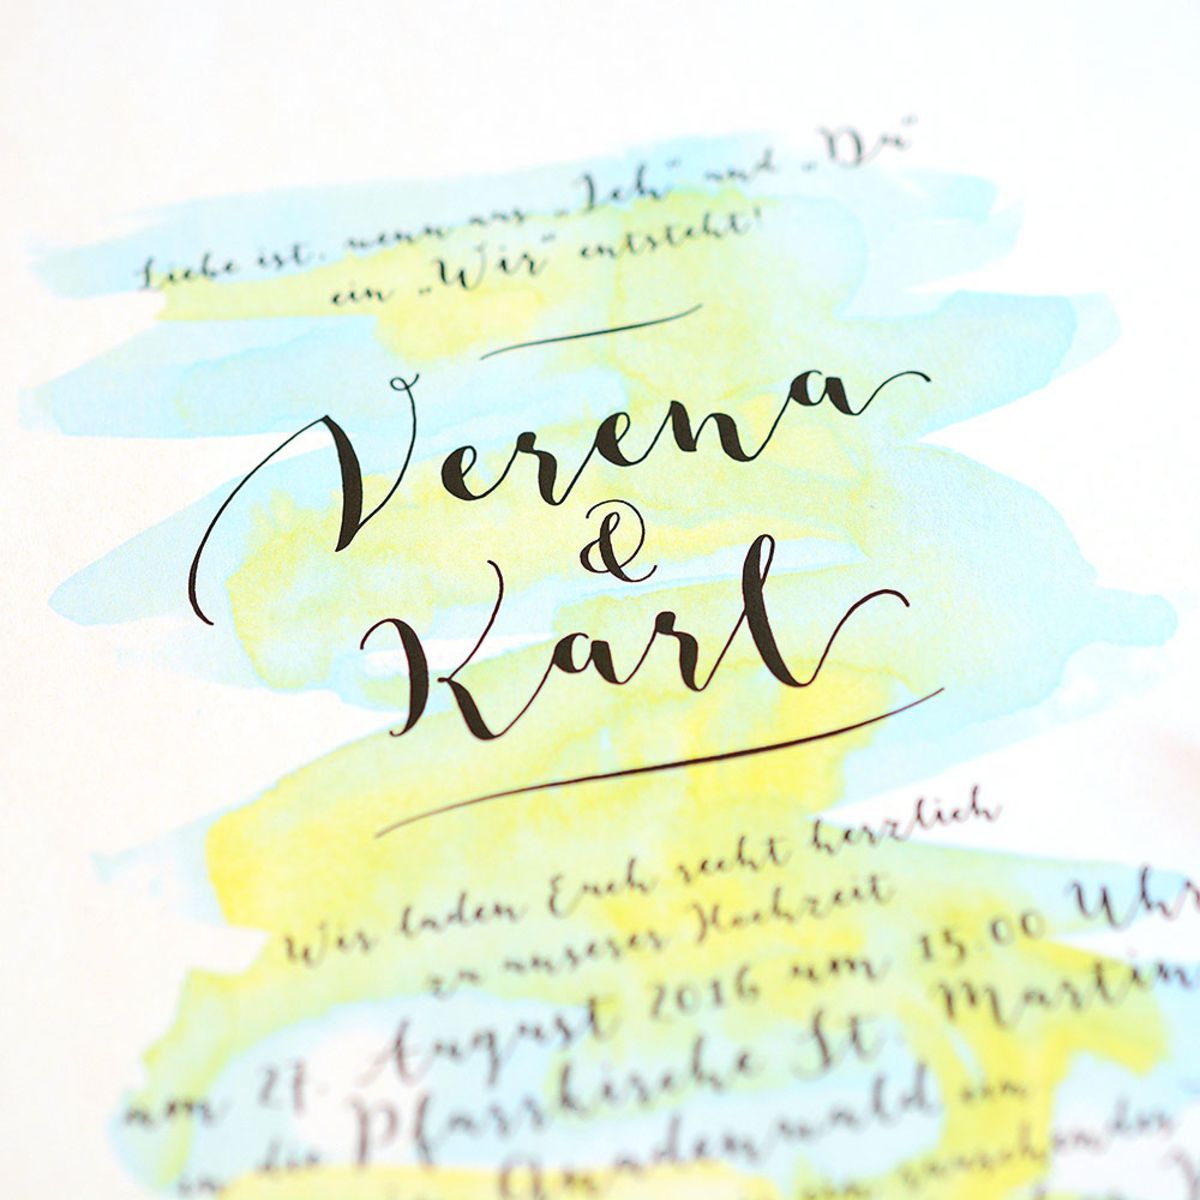 Liebe ist, wenn aus „Ich“ und „Du“
ein „Wir“ entsteht!
Verena
&
Karl
Wir laden Euch recht herzlich
zu unserer Hochzeit
am 27. August 2016 um 15.00 Uhr
in die Pfarrkirche St. Martin
Gnadenwald ein